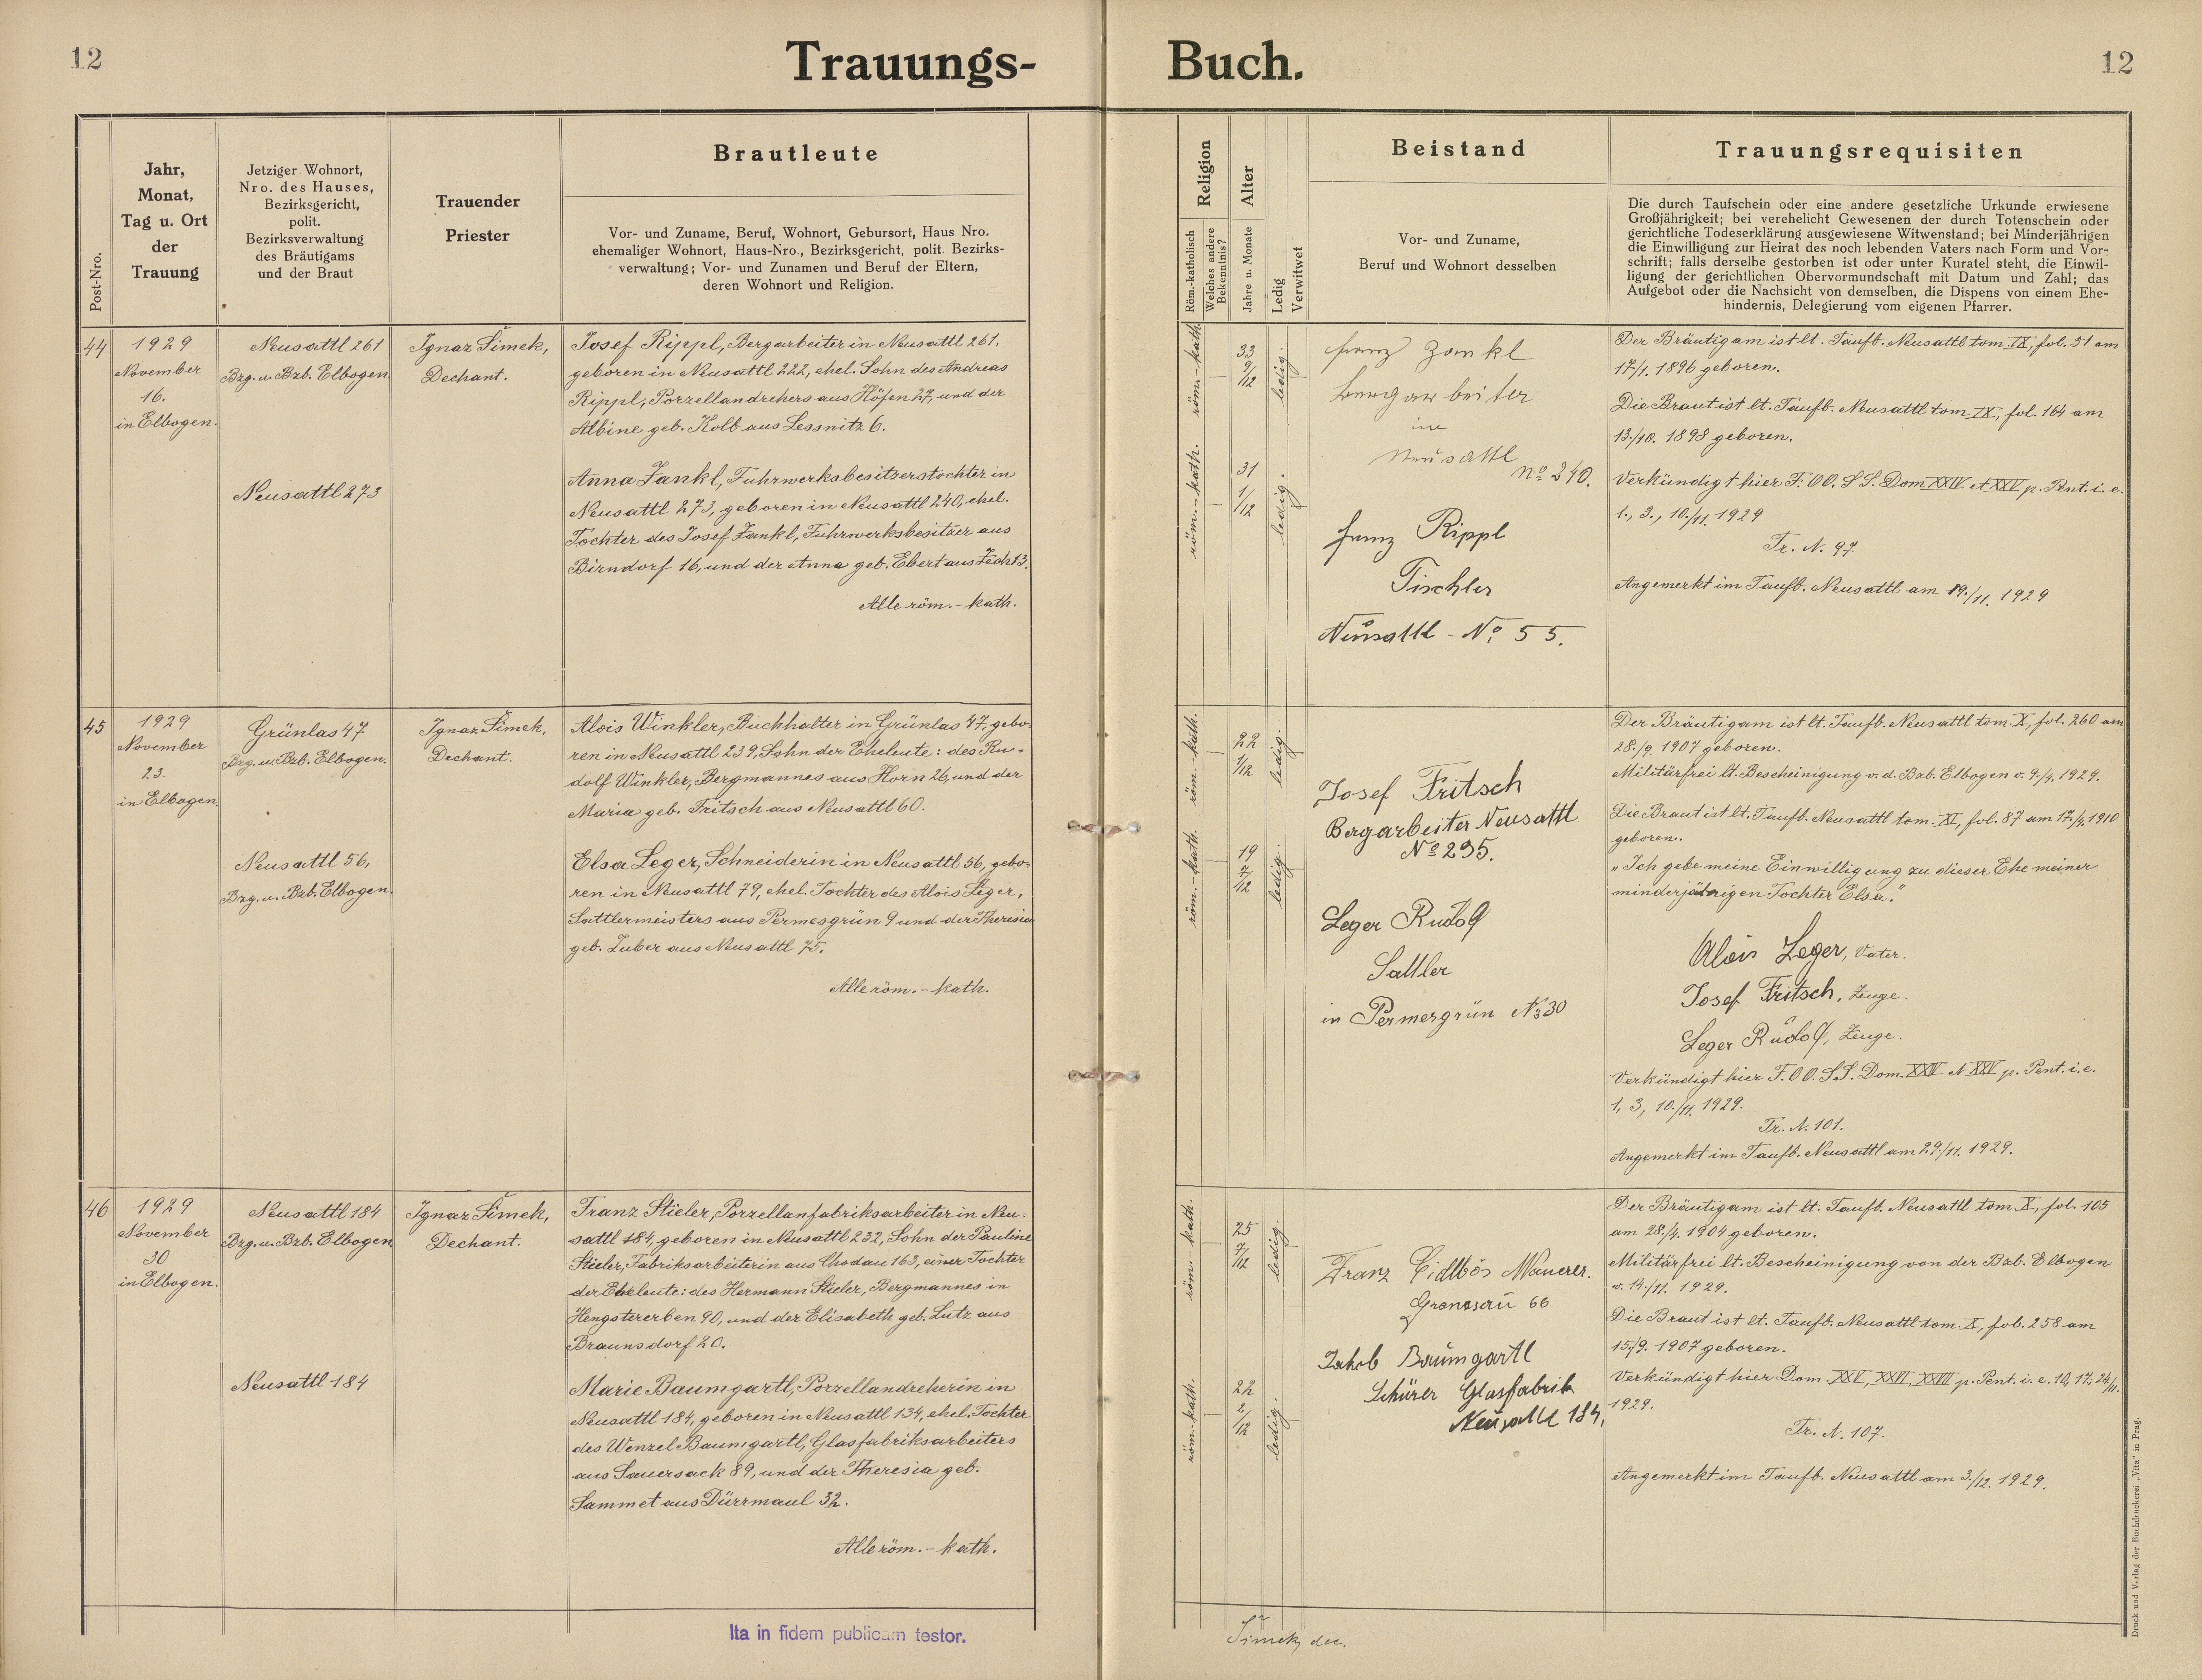 12
Trauungs-
Buch.
12
Post-Nro.
Jahr,
Monat,
Tag u. Ort
der
Trauung
Jetziger Wohnort,
Nro. des Hauses,
Bezirksgericht,
polit.
Bezirksverwaltung
des Bräutigams
und der Braut
Trauender
Priester
Brautleute
Vor- und Zuname, Beruf, Wohnort, Gebursort, Haus Nro.
ehemaliger Wohnort, Haus-Nro., Bezirksgericht, polit. Bezirks-
verwaltung; Vor- und Zunamen und Beruf der Eltern,
deren Wohnort und Religion.
Religion
Röm.-katholisch
Welches andere
Bekenntnis?
Alter
Jahre u. Monate
Ledig
Verwitwet
Beistand
Vor- und Zuname,
Beruf und Wohnort desselben
Trauungsrequisiten
Die durch Taufschein oder eine andere gesetzliche Urkunde erwiesene
Großjährigkeit; bei verehelicht Gewesenen der durch Totenschein oder
gerichtliche Todeserklärung ausgewiesene Witwenstand; bei Minderjährigen
die Einwilligung zur Heirat des noch lebenden Vaters nach Form und Vor-
schrift; falls derselbe gestorben ist oder unter Kuratel steht, die Einwil-
ligung der gerichtlichen Obervormundschaft mit Datum und Zahl; das
Aufgebot oder die Nachsicht von demselben, die Dispens von einem Ehe-
hindernis, Delegierung vom eigenen Pfarrer.
44
1929
November
16.
in Elbogen.
Neusattl 261
Bzg. u. Bzb. Elbogen.
Neusattl 273
Ignaz Šimek,
Dechant.
Josef Rippl, Bergarbeiter in Neusattl 261,
geboren in Neusattl 222, ehel. Sohn des Andreas
Rippl, Porzellandrehers aus Höfen 27, und der
Albine geb. Kolb aus Lessnitz 6.
Anna Zankl, Fuhrwerksbesitzerstochter in
Neusattl 273, geboren in Neusattl 240, ehel.
Tochter des Josef Zankl, Fuhrwerksbesitzer aus
Birndorf 16, und der Anna geb. Ebert aus Zech 13.
Alle röm.-kath.
röm.-kath.
33
9/12
ledig.
röm.-kath.
31
1/12
ledig.
Franz Zankl
Bergarbeiter
in
Neusattl
No 240.
Franz Rippl
Tischler
Neusattl - No 55.
Der Bräutigam ist lt. Taufb. Neusattl tom. IX, fol. 51 am
17./1. 1896 geboren.
Die Braut ist lt. Taufb. Neusattl tom. IX, fol. 164 am
13./10. 1898 geboren.
Verkündigt hier F. OO. SS. Dom XXIV et XXV p. Pent. i. e.
1., 3., 10./11. 1929
Tr. N. 97
Angemerkt im Taufb. Neusattl am 19./11. 1929
45
1929
November
23.
in Elbogen.
Grünlas 47
Bzg. u. Bzb. Elbogen.
Neusattl 56,
Bzg. u. Bzb. Elbogen.
Ignaz Šimek,
Dechant.
Alois Winkler, Buchhalter in Grünlas 47, gebo-
ren in Neusattl 239, Sohn der Eheleute: des Ru-
dolf Winkler, Bergmannes aus Horn 26, und der
Maria geb. Fritsch aus Neusattl 60.
Elsa Leger, Schneiderin in Neusattl 56, gebo-
ren in Neusattl 79, ehel. Tochter des Alois Leger,
Sattlermeisters aus Permesgrün 9 und der Theresia
geb. Zuber aus Neusattl 75.
Alle röm.-kath.
röm.-kath.
22
1/12
ledig.
röm.-kath.
19
7/12
ledig.
Josef Fritsch
Bergarbeiter Neusattl
No 295.
Leger Rudolf
Sattler
in Permesgrün No 30
Der Bräutigam ist lt. Taufb. Neusattl tom. X, fol. 260 am
28./9. 1907 geboren.
Militärfrei lt. Bescheinigung v. d. Bzb. Elbogen v. 9./4. 1929.
Die Braut ist lt. Taufb. Neusattl tom. XI, fol. 87 am 17./4. 1910
geboren.
„Ich gebe meine Einwilligung zu dieser Ehe meiner
minderjährigen Tochter Elsa."
Alois Leger, Vater.
Josef Fritsch, Zeuge.
Leger Rudolf, Zeuge.
Verkündigt hier F. OO. SS. Dom. XXIV et XXV p. Pent. i. e.
1, 3, 10./11. 1929.
Tr. N. 101.
Angemerkt im Taufb. Neusattl am 29./11. 1929.
46
1929
November
30
in Elbogen.
Neusattl 184
Bzg. u. Bzb. Elbogen
Neusattl 184
Ignaz Šimek,
Dechant.
Franz Stieler, Porzellanfabriksarbeiter in Neu-
sattl 184, geboren in Neusattl 232, Sohn der Pauline
Stieler, Fabriksarbeiterin aus Chodau 163, einer Tochter
der Eheleute: des Hermann Stieler, Bergmannes in
Hengstererben 90, und der Elisabeth geb. Lutz aus
Braunsdorf 20.
Marie Baumgartl, Porzellandreherin in
Neusattl 184, geboren in Neusattl 134, ehel. Tochter
des Wenzel Baumgartl, Glasfabriksarbeiters
aus Sauersack 89, und der Theresia geb.
Sammet aus Dürrmaul 32.
Alle röm.-kath.
röm.-kath.
25
7/12
ledig.
röm.-kath.
22
2/12
ledig.
Franz Mauerer.
66
Jakob Baumgartl
Schürer Glasfabrik
Neusattl 184.
Der Bräutigam ist lt. Taufb. Neusattl tom. X, fol. 105
am 28./4. 1904 geboren.
Militärfrei lt. Bescheinigung von der Bzb. Elbogen
v. 14./11. 1929.
Die Braut ist lt. Taufb. Neusattl tom. X, fol. 258 am
15./9. 1907 geboren.
Verkündigt hier Dom. XXV, XXVI, XXVII p. Pent. i. e. 10., 17., 24./11.
1929.
Tr. N. 107.
Angemerkt im Taufb. Neusattl am 3./12. 1929.
Ita in fidem publicam testor.
Šimek, dec.
Druck und Verlag der Buchdruckerei „Vita" in Prag.